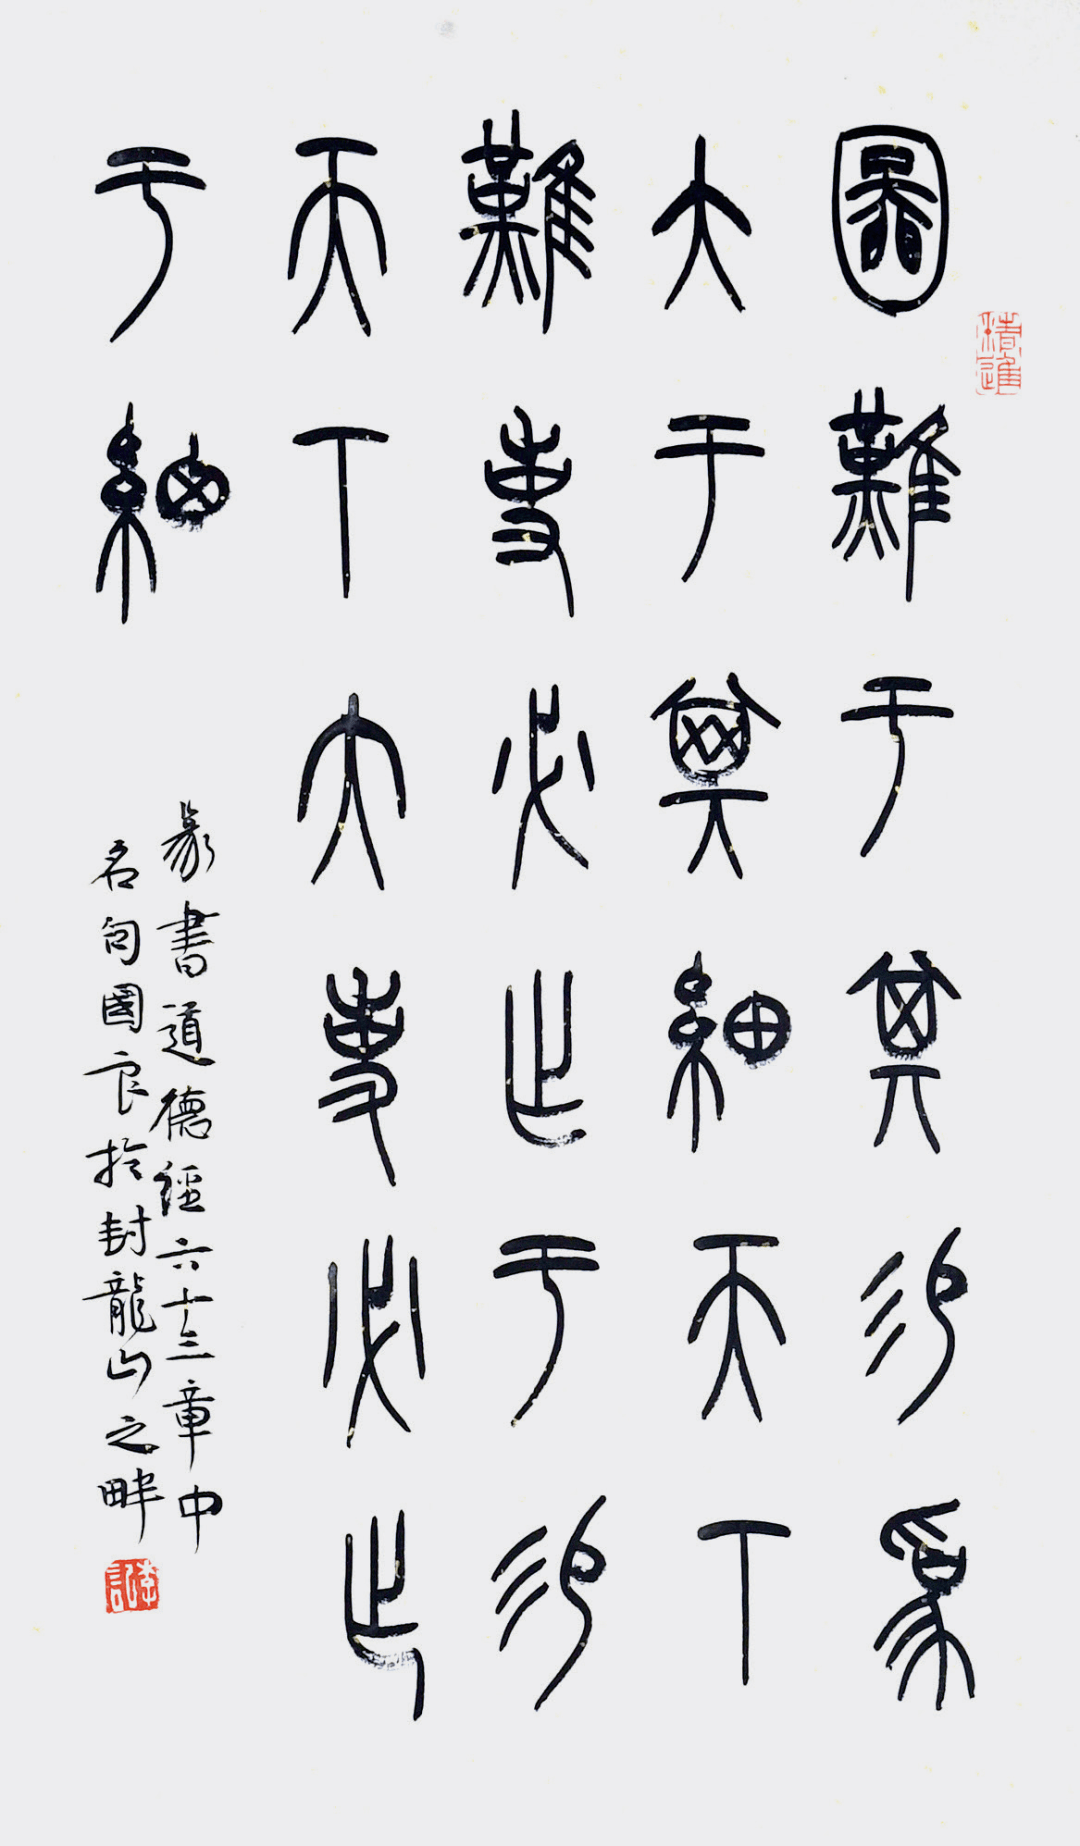 圖難于其易為
大于其細天下
難事必作于易
天下大事必作
于細
篆書道德經六十三章中
名句國良於封龍山之畔
精進